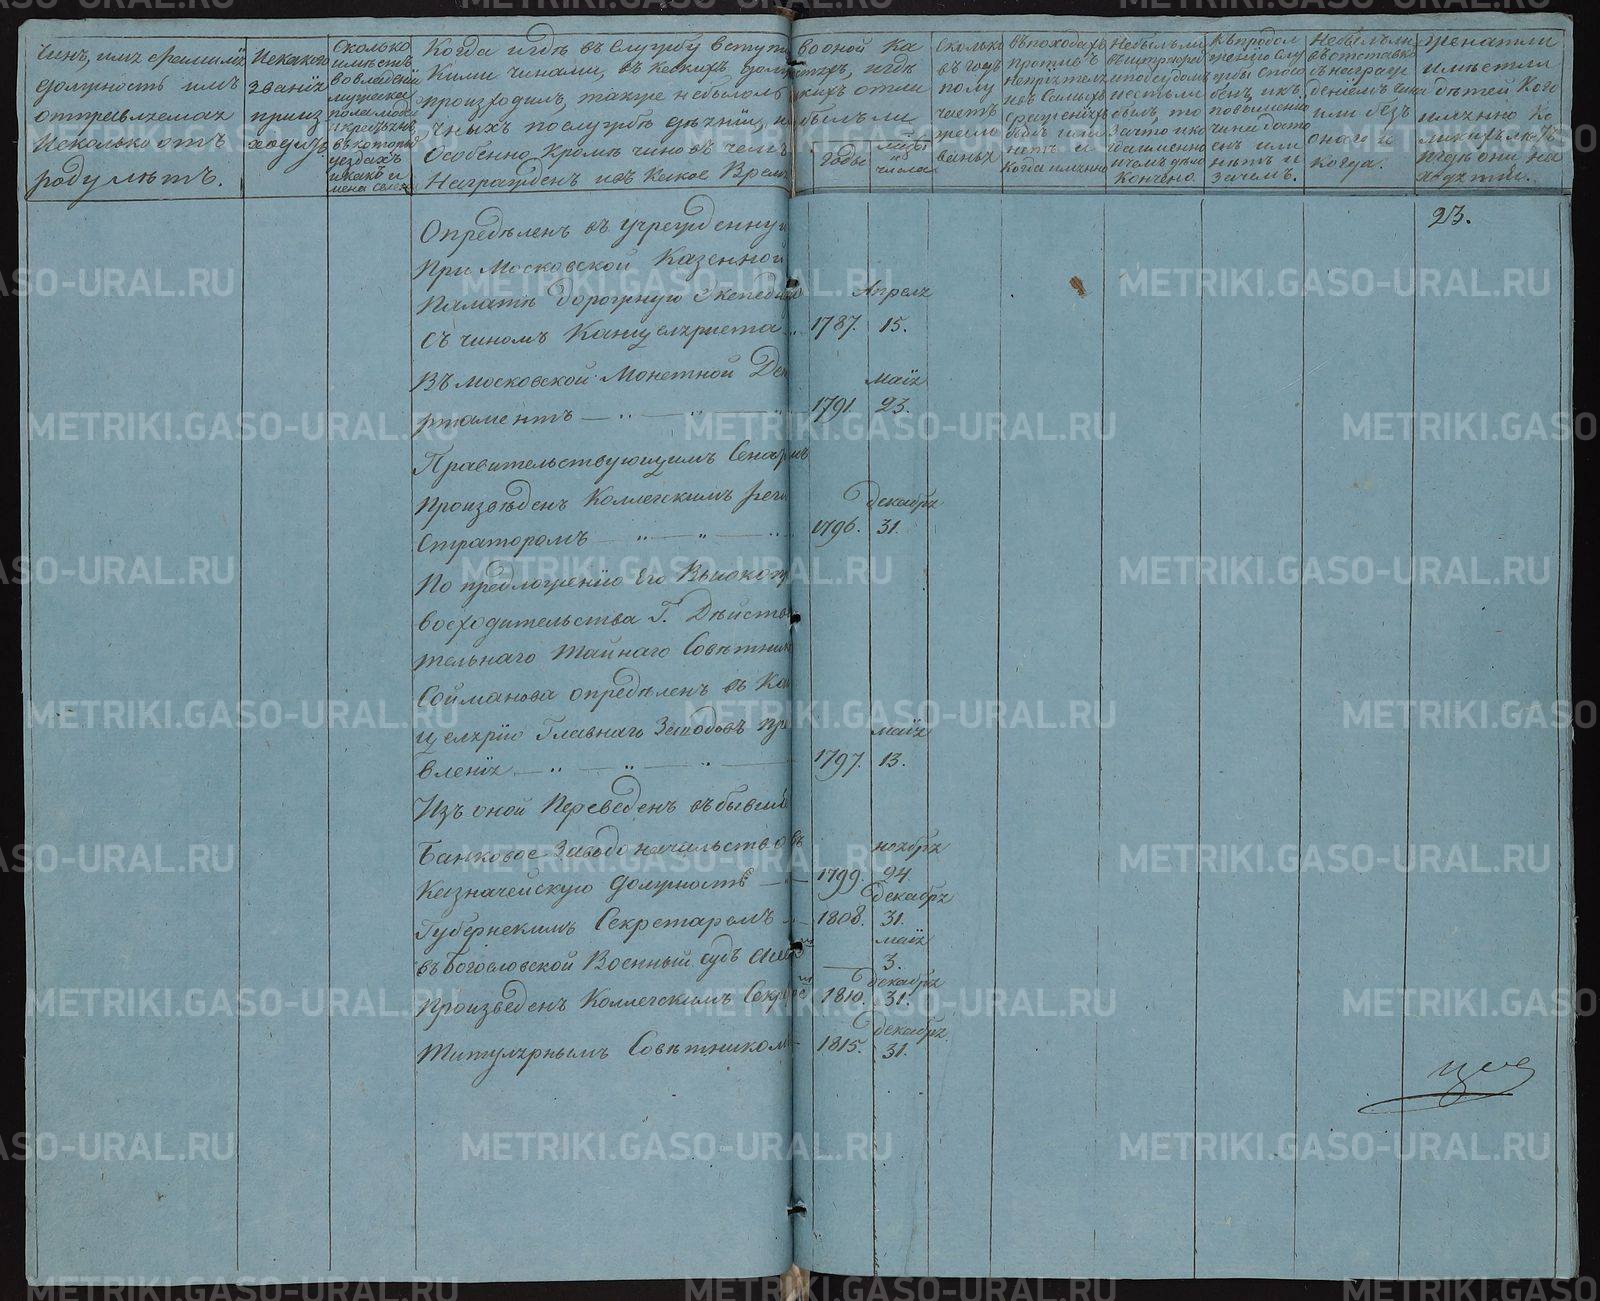 Чинъ, имя фамилiя
должность имъ
отправляемая
и сколько отъ
роду лѣтъ.
Изъ какого
званiя
проис
ходитъ
Сколько
имѣетъ
во владѣнiи
мужеска
пола людей
и крестьянъ
въ которыхъ
уездахъ
и какъ и
мена селе
Когда и гдѣ въ службу вступи
кими чинами, въ какихъ долж
происходилъ, также не былоль
чныхъ по службѣ дѣянiй, и
особенно кромѣ чиновъ чемъ
награжденъ и въ какое время
въ оной ка
ностяхъ, и гдѣ
какихъ отли
былъ ли
Годы
мцы и числа
Сколько
въ году
полу
чаетъ
жало
ванья
Въ походахъ
противъ
непрiятеля
и въ самыхъ
сраженiяхъ
былъ или
нѣтъ и
когда имянно
Не былъ ли
въ штрафѣ
и подсудомъ
и естьли
былъ, то
за что и ко
гда именно
и чемъ дѣло
кончено
Къ продол
женiю слу
жбы спосо
бенъ и къ
повышенiю
чина досто
енъ или
нѣтъ и
зачемъ.
Не былъ ли
въ отставкѣ
съ награж
денiемъ чина
или безъ
онаго и
когда.
Женатъ ли
имѣетъ ли
дѣтей кого
имянно ко
ликихъ лѣтъ
и гдѣ они на
ходятся.
23.
Опредѣленъ въ учрежденную
при Московской Казенной
Палатѣ дорожную Экспедицiю
съ чиномъ Канцеляриста
Апреля
1787. 15.
Въ московской монетной Депа
ртаментъ
маiя
1791. 23.
Правительствующимъ Сенатомъ
произвѣденъ Коллежскимъ реги
страторомъ
декабря
1796. 31.
По предложенiю Его Высокопре
восходительства Г. Дѣйстви
тельнаго тайнаго Совѣтника
Сойманова опредѣленъ въ Кан
целярiю Главнаго Заводовъ пра
вленiя
маiя
1797. 13.
Изъ оной переведенъ въ бывшее
Банковое Заводоначальство въ
Казначейскую должность
ноября
1799. 24
Губернскимъ Секретаремъ
декабря
1808. 31.
въ Богословской Военный судъ
маiя
3.
произведенъ Коллежскимъ Секре
декабря
1810. 31.
Титулярнымъ Совѣтникомъ
декабря
1815. 31.
METRIKI.GASO-URAL.RU